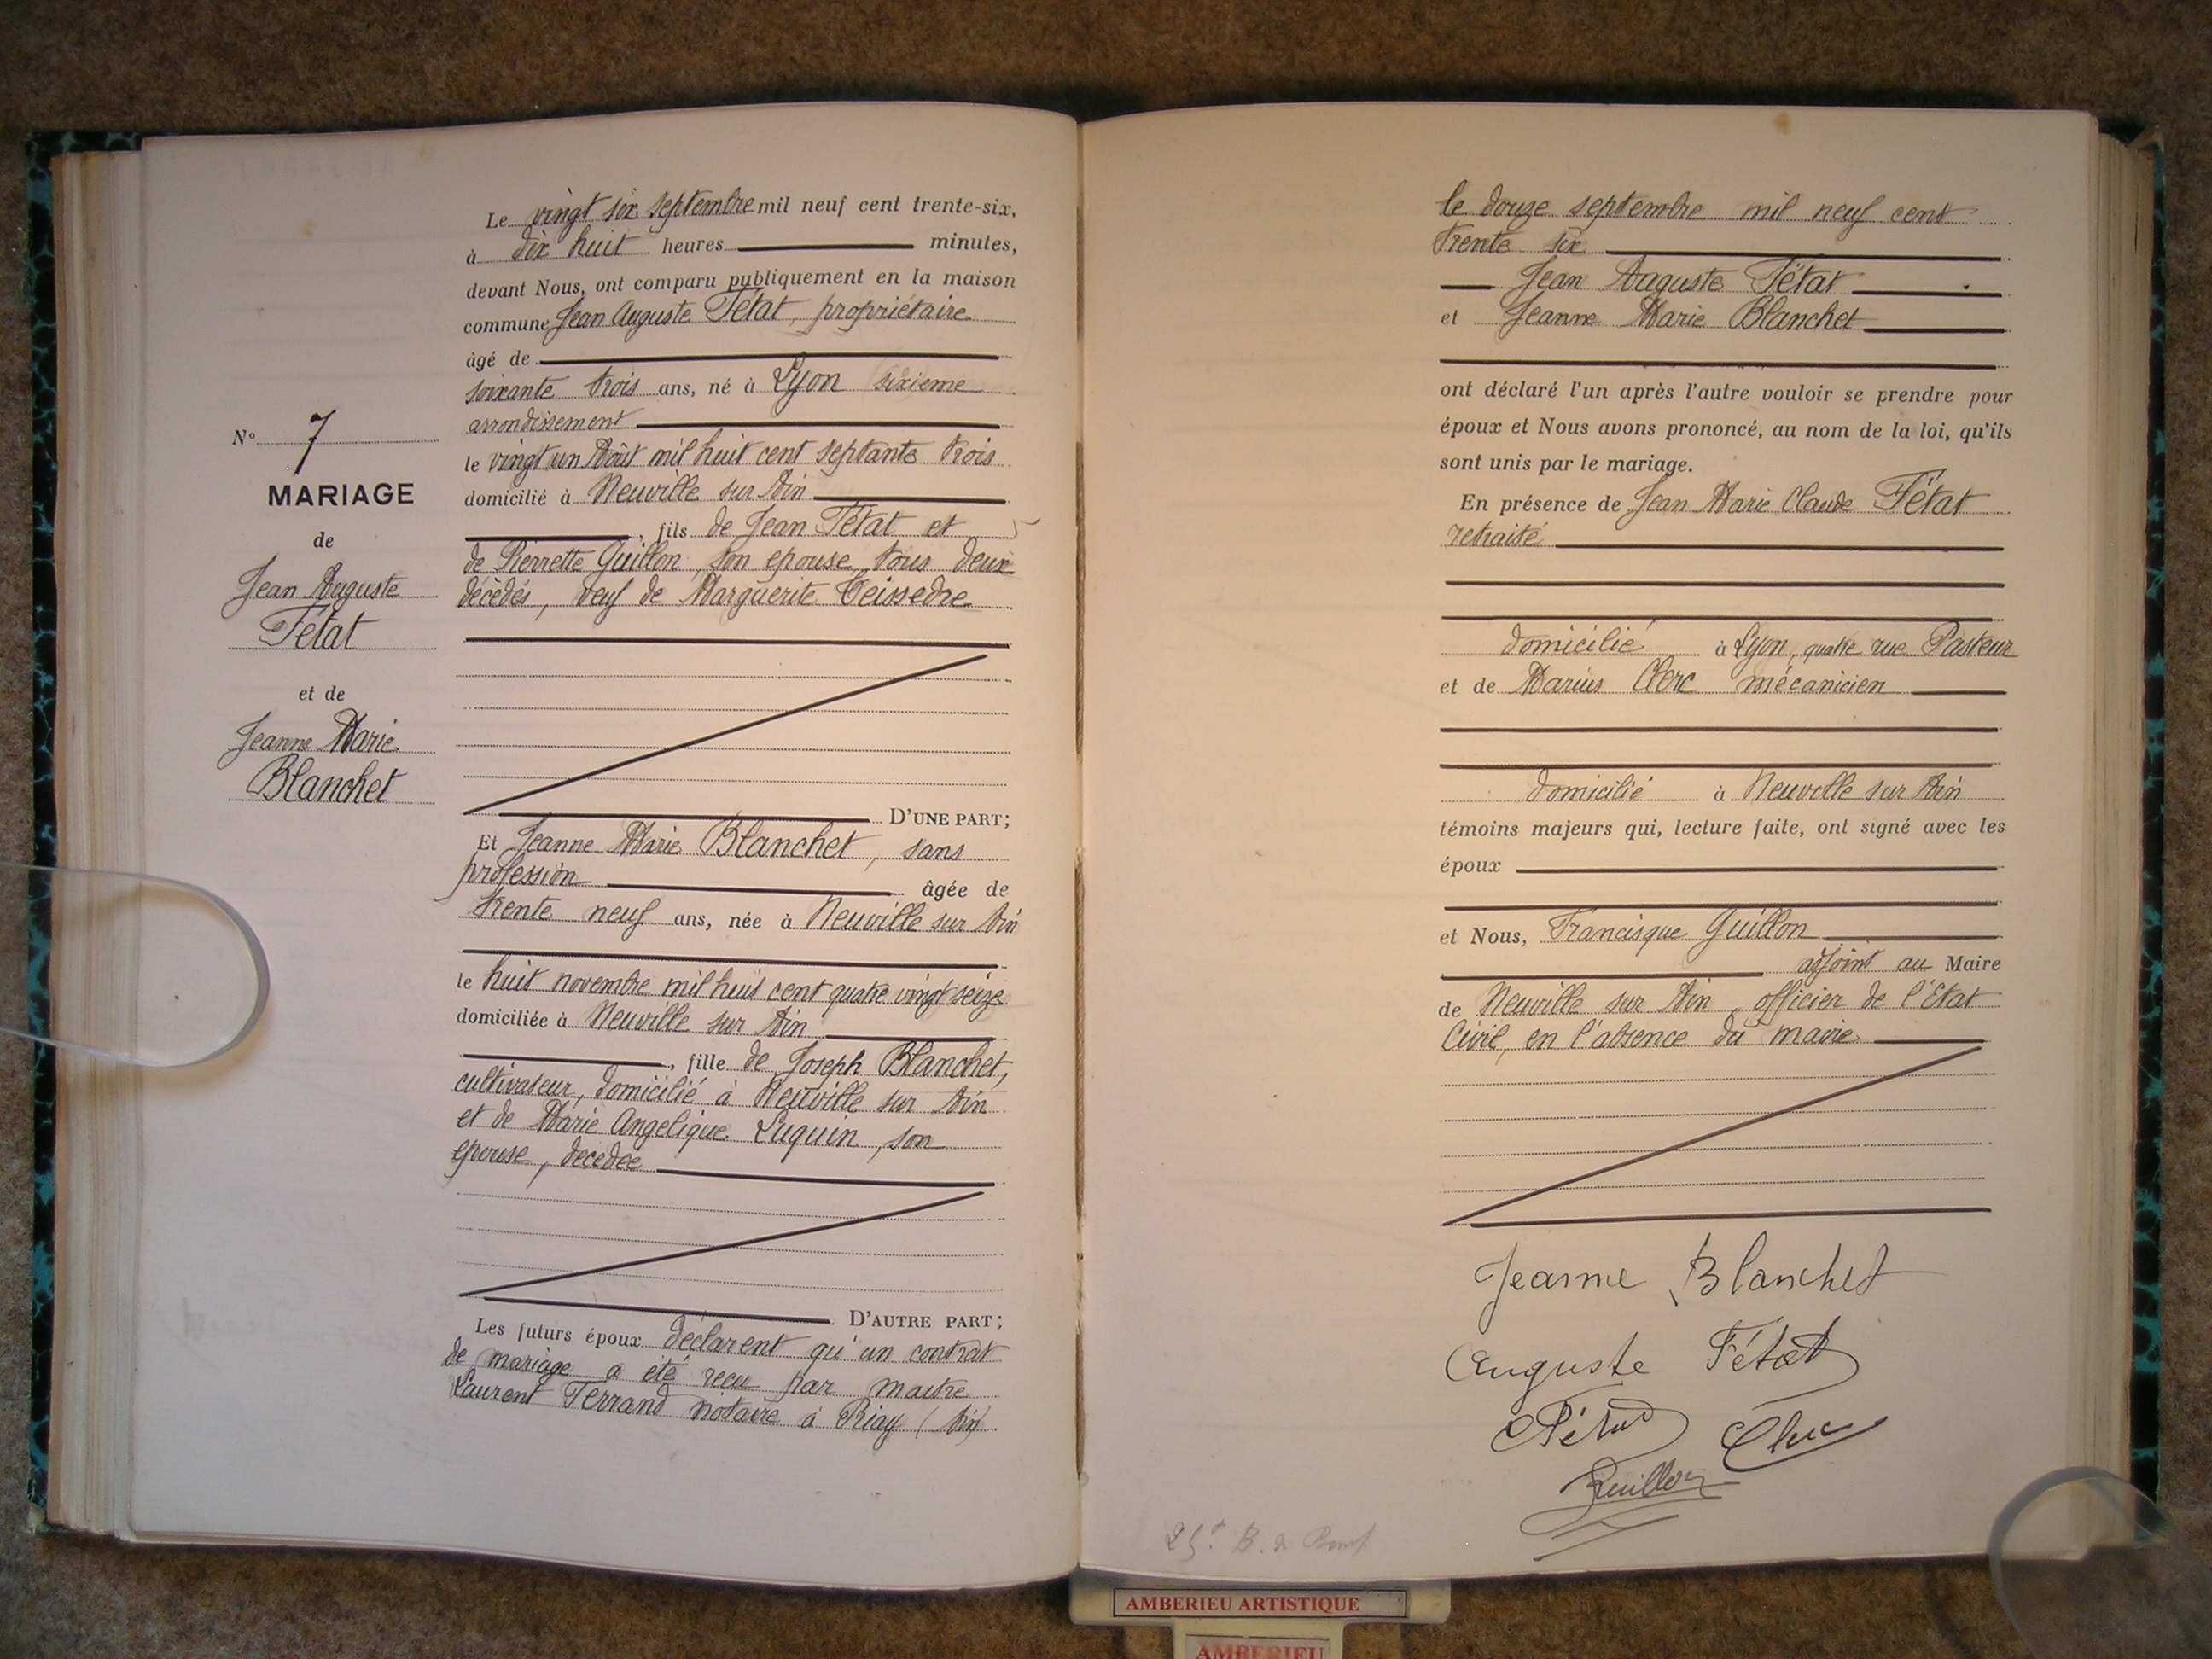 Le vingt six septembre mil neuf cent trente-six,
à dix huit heures minutes,
devant Nous, ont comparu publiquement en la maison
commune Jean Auguste Fétat, propriétaire
âgé de
soixante trois ans, né à Lyon sixieme
arrondissement
le vingt un Août mil huit cent septante trois
domicilié à Neuville sur Ain
, fils de Jean Fétat et
de Pierrette Guillon, son epouse, tous deux
décèdés, veuf de Marguerite Teissedre
D'UNE PART;
Et Jeanne Marie Blanchet, sans
profession âgée de
trente neuf ans, née à Neuville sur Ain
le huit novembre mil huit cent quatre vingt seize
domiciliée à Neuville sur Ain
, fille de Joseph Blanchet,
cultivateur, domicilié à Neuville sur Ain
et de Marie Angelique Luquin, son
epouse, décedée
D'AUTRE PART;
Les futurs époux déclarent qu'un contrat
de mariage a été recu par maitre
Laurent Ferrand notaire à Priay (Ain)
N° 7
MARIAGE
de
Jean Auguste
Fétat
et de
Jeanne Marie
Blanchet
le douze septembre mil neuf cent
trente six
Jean Auguste Fétat
et Jeanne Marie Blanchet
ont déclaré l'un après l'autre vouloir se prendre pour
époux et Nous avons prononcé, au nom de la loi, qu'ils
sont unis par le mariage.
En présence de Jean Marie Claude Fétat
retraité
domicilié à Lyon, quatre rue Pasteur
et de Marius Clerc mécanicien
domicilié à Neuville sur Ain
témoins majeurs qui, lecture faite, ont signé avec les
époux
et Nous, Francisque Guillon
adjoint au Maire
de Neuville sur Ain officier de l'Etat
Civil, en l'absence du maire
Jeanne Blanchet
Auguste Fétat
Fétat Clerc
Guillon
AMBERIEU ARTISTIQUE
AMBERIEU